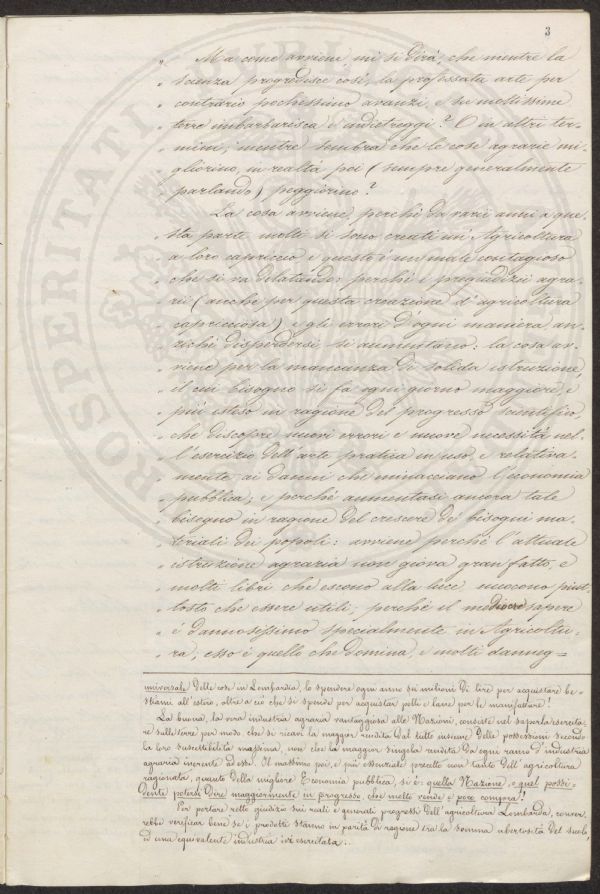 3
" Ma come avviene mi si dirà, che mentre la
" scienza progredisce così, la professata arte per
" contrario pochissimo avanzi, e su moltissime
" terre imbarbarisca e indietreggi? O in altri ter-
" mini, mentre sembra che le cose agrarie mi-
" gliorino, in realtà poi (sempre generalmente
" parlando) peggiorino?
" La cosa avviene perchè da varii anni a que-
" sta parte molti si sono creati un'Agricoltura
" a loro capriccio e questo è un male contagioso
" che si va dilatando: perchè i pregiudizii agra-
" ri (anche per questa creazione d'agricoltura
" capricciosa) e gli errori d'ogni maniera an-
" zichè disperdersi si aumentano: la cosa av-
" viene per la mancanza di solida istruzione,
" il cui bisogno si fa ogni giorno maggiore, e
" più esteso in ragione del progresso scientifico,
" che discopre nuovi errori e nuove necessità nel-
" l'esercizio dell'arte pratica in uso, e relativa-
" mente ai danni che minacciano l'economia
" pubblica; e perchè aumentasi ancora tale
" bisogno in ragione del crescere de' bisogni ma-
" teriali dei popoli: avviene perchè l'attuale
" istruzione agraria non giova gran fatto, e
" molti libri che escono alla luce nuocono piut-
" tosto che essere utili; perchè il mediocre sapere
" è dannosissimo specialmente in Agricoltu-
" ra; esso è quello che domina, e molti danneg=
universale delle cose in Lombardia, lo spendere ogni anno sei milioni di lire per acquistare be-
stiami all'estero, oltre a ciò che si spende per acquistar pelle e lane per le manifatture!
La buona, la vera industria agraria vantaggiosa alle Nazioni, consiste nel saperla esercita-
re sulle terre per modo che si ricavi la maggior rendita dal tutto insieme delle possessioni secondo
la loro suscettibilità massima, non che la maggior singola rendita da ogni ramo d'industria
agraria inerente ad esse. Il massimo poi, e più essenziale precetto non tanto dell'agricoltura
ragionata, quanto della migliore Economia pubblica, si è: quella Nazione, e quel possi-
dente potersi dire maggiormente in progresso che molto vende e poco compra!
Per portare retto giudizio sui reali e generali progressi dell'agricoltura Lombarda, conver-
rebbe verificar bene se i prodotti stanno in parità di ragione tra la somma ubertosità del suolo,
ed una equivalente industria ivi esercitata.
PROSPERITATI